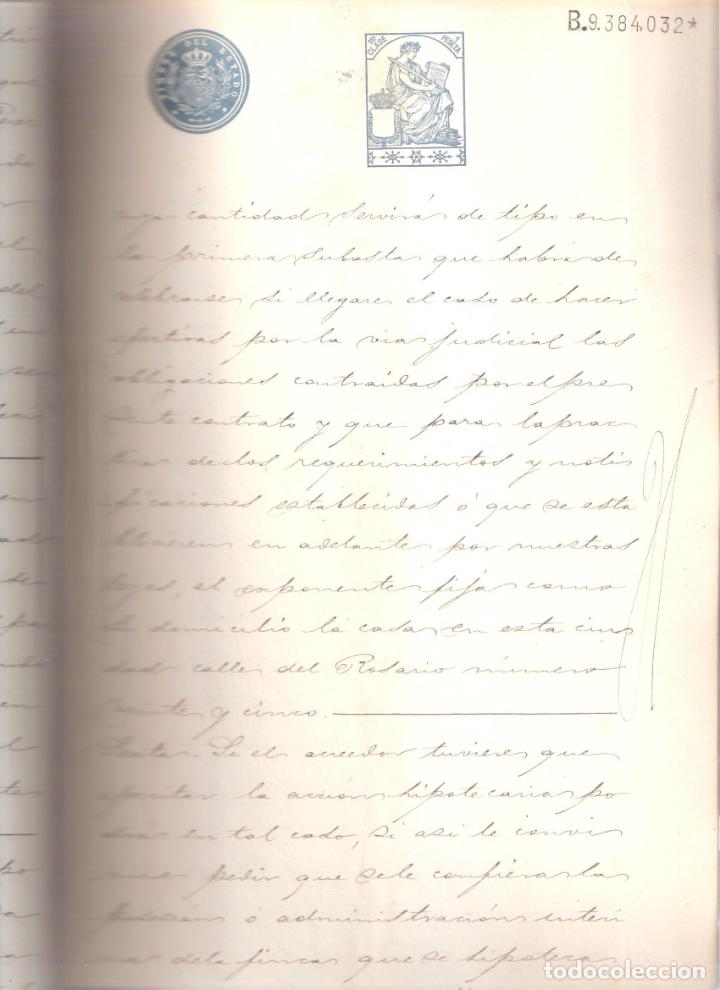 B.9.384,032*
TIMBRE DEL ESTADO
11ª CLASE 1 PESETA
cuya cantidad servirá de tipo en
la primera subasta que habrá de
celebrarse si llegare el caso de hacer
efectivas por la via judicial las
obligaciones contraidas por el pre
sente contrato y que para la prac
tica de los requerimientos y noti
ficaciones establecidas ó que se esta
blecieren en adelante por nuestras
leyes, el exponente fija como
su domicilio la casa en esta ciu
dad calle del Rosario número
veinte y cinco.
Sexta. Si el acreedor tuviere que
ejercitar la acción hipotecaria po
drá en tal caso, si asi le convi
niere pedir que se le confiera la
ó administración interi
na de la finca que se hipoteca
todocoleccion.net